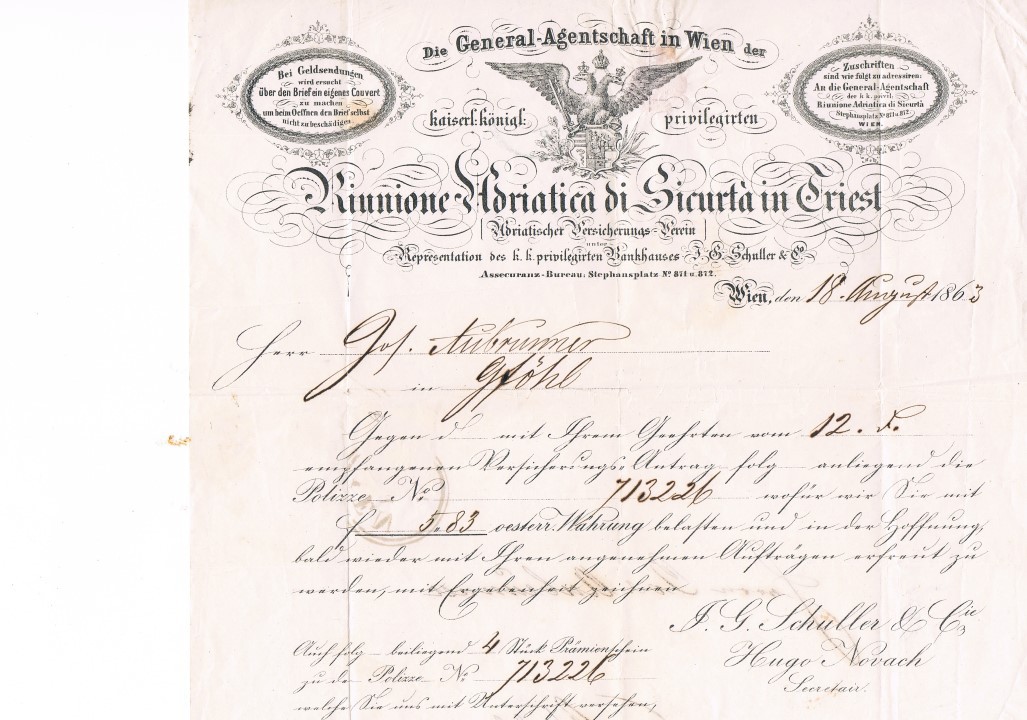 Die General-Agentschaft in Wien der
Bei Geldsendungen
wird ersucht
über den Brief ein eigenes Couvert
zu machen
um beim Oeffnen den Brief selbst
nicht zu beschädigen.
Zuschriften
sind wie folgt zu adressiren:
An die General-Agentschaft
der k.k. privil.
Riunione Adriatica di Sicurtà
Stephansplatz No 871 u. 872
WIEN.
kaiserl: königl: privilegirten
Riunione Adriatica di Sicurtà in Triest
Adriatischer Versicherungs-Verein
unter
Representation des k. k. privilegirten Bankhauses J. G. Schuller & Co
Assecuranz-Bureau: Stephansplatz No 871 u. 872.
Wien, den 18. August 1863
Herr Jos.
in Gföhl
Gegen d mit Ihrem Geehrten vom 12. d.
empfangenen Versicherungs-Antrag folg anliegend die
Polizze No 713226 wofür wir Sie mit
f 5.83 oesterr. Währung belasten und in der Hoffnung,
bald wieder mit Ihren angenehmen Aufträgen erfreut zu
werden, mit Ergebenheit zeichnen
J. G. Schuller & Cie
Hugo Novach
Secretair.
Auch folg beiliegend 4 Stück Prämienschein
zu de Polizze No 713226
welche Sie uns mit Unterschrift versehen,